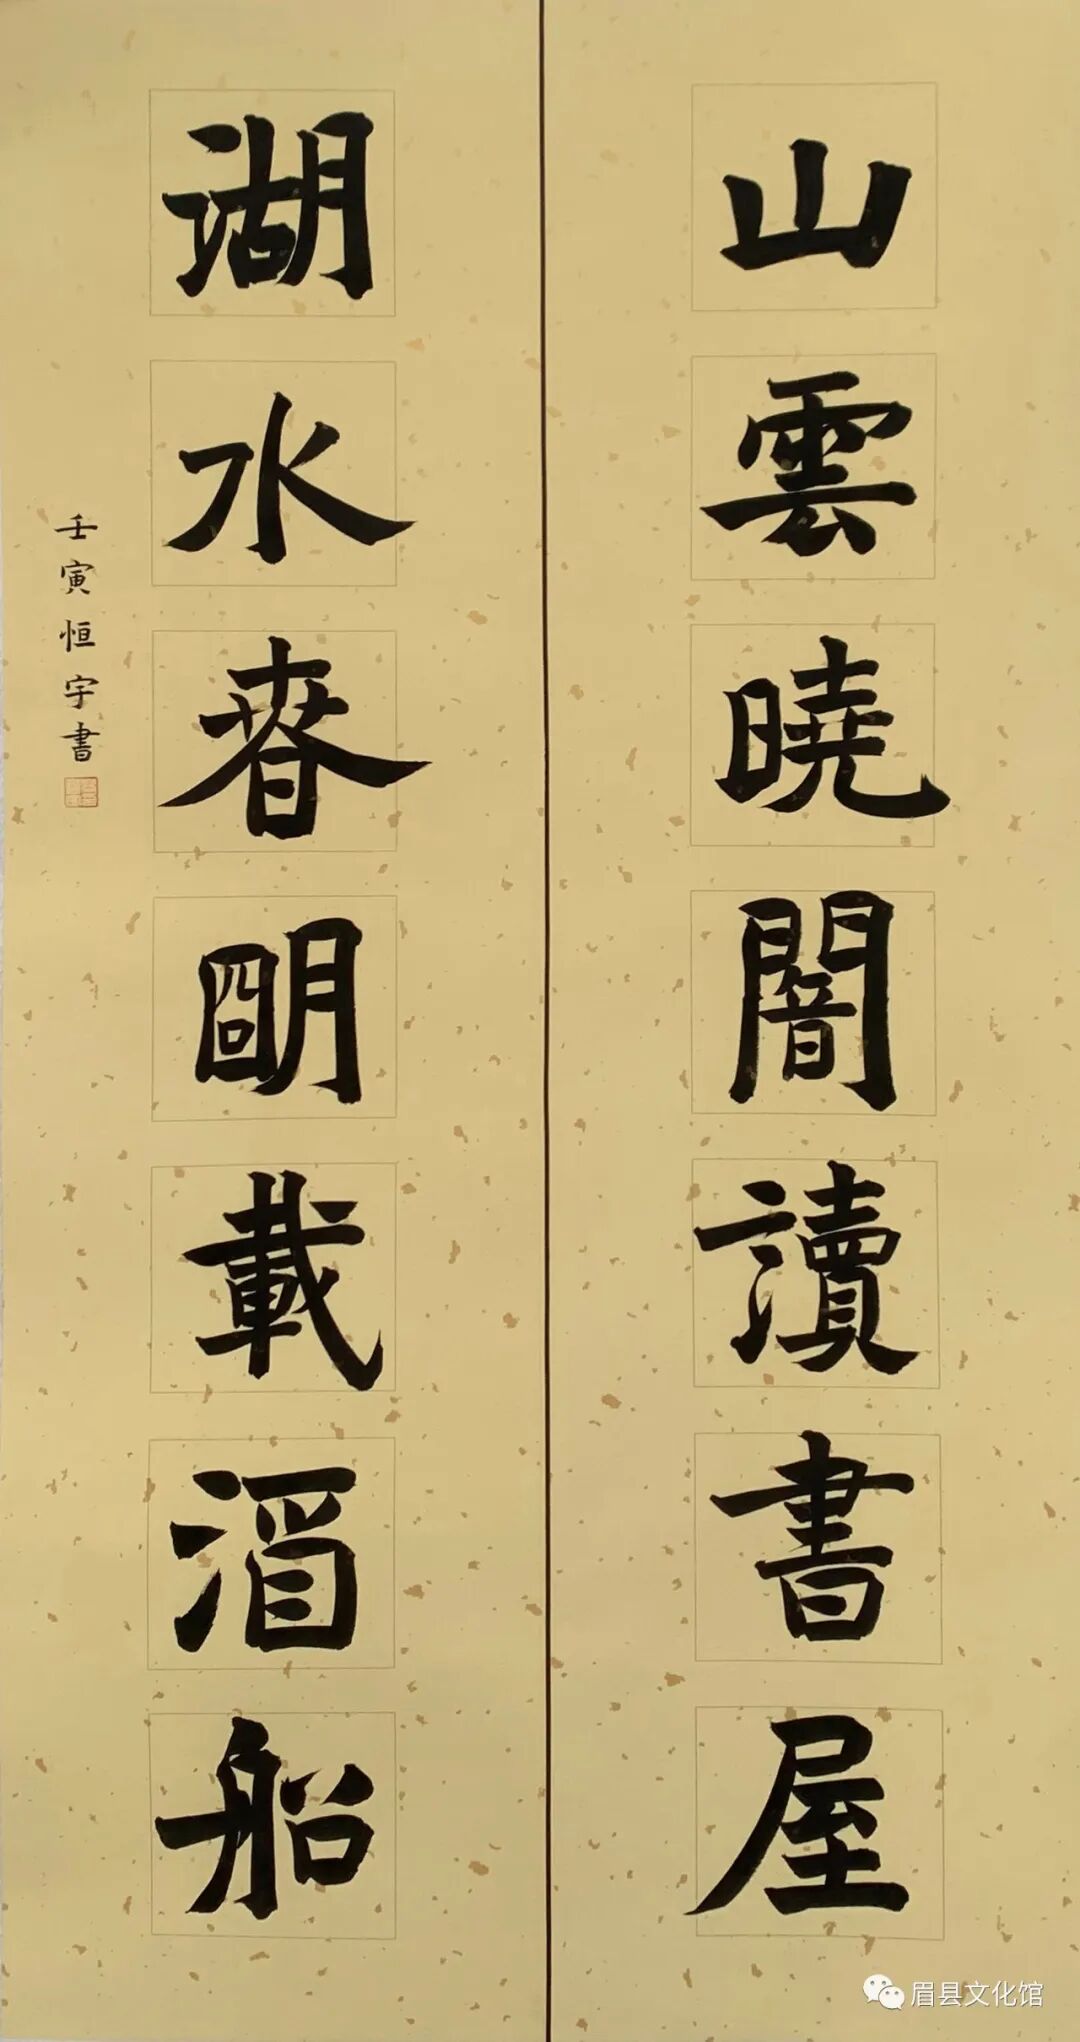 山雲曉闇讀書屋
湖水春明載酒船
壬寅恒宇書
眉县文化馆